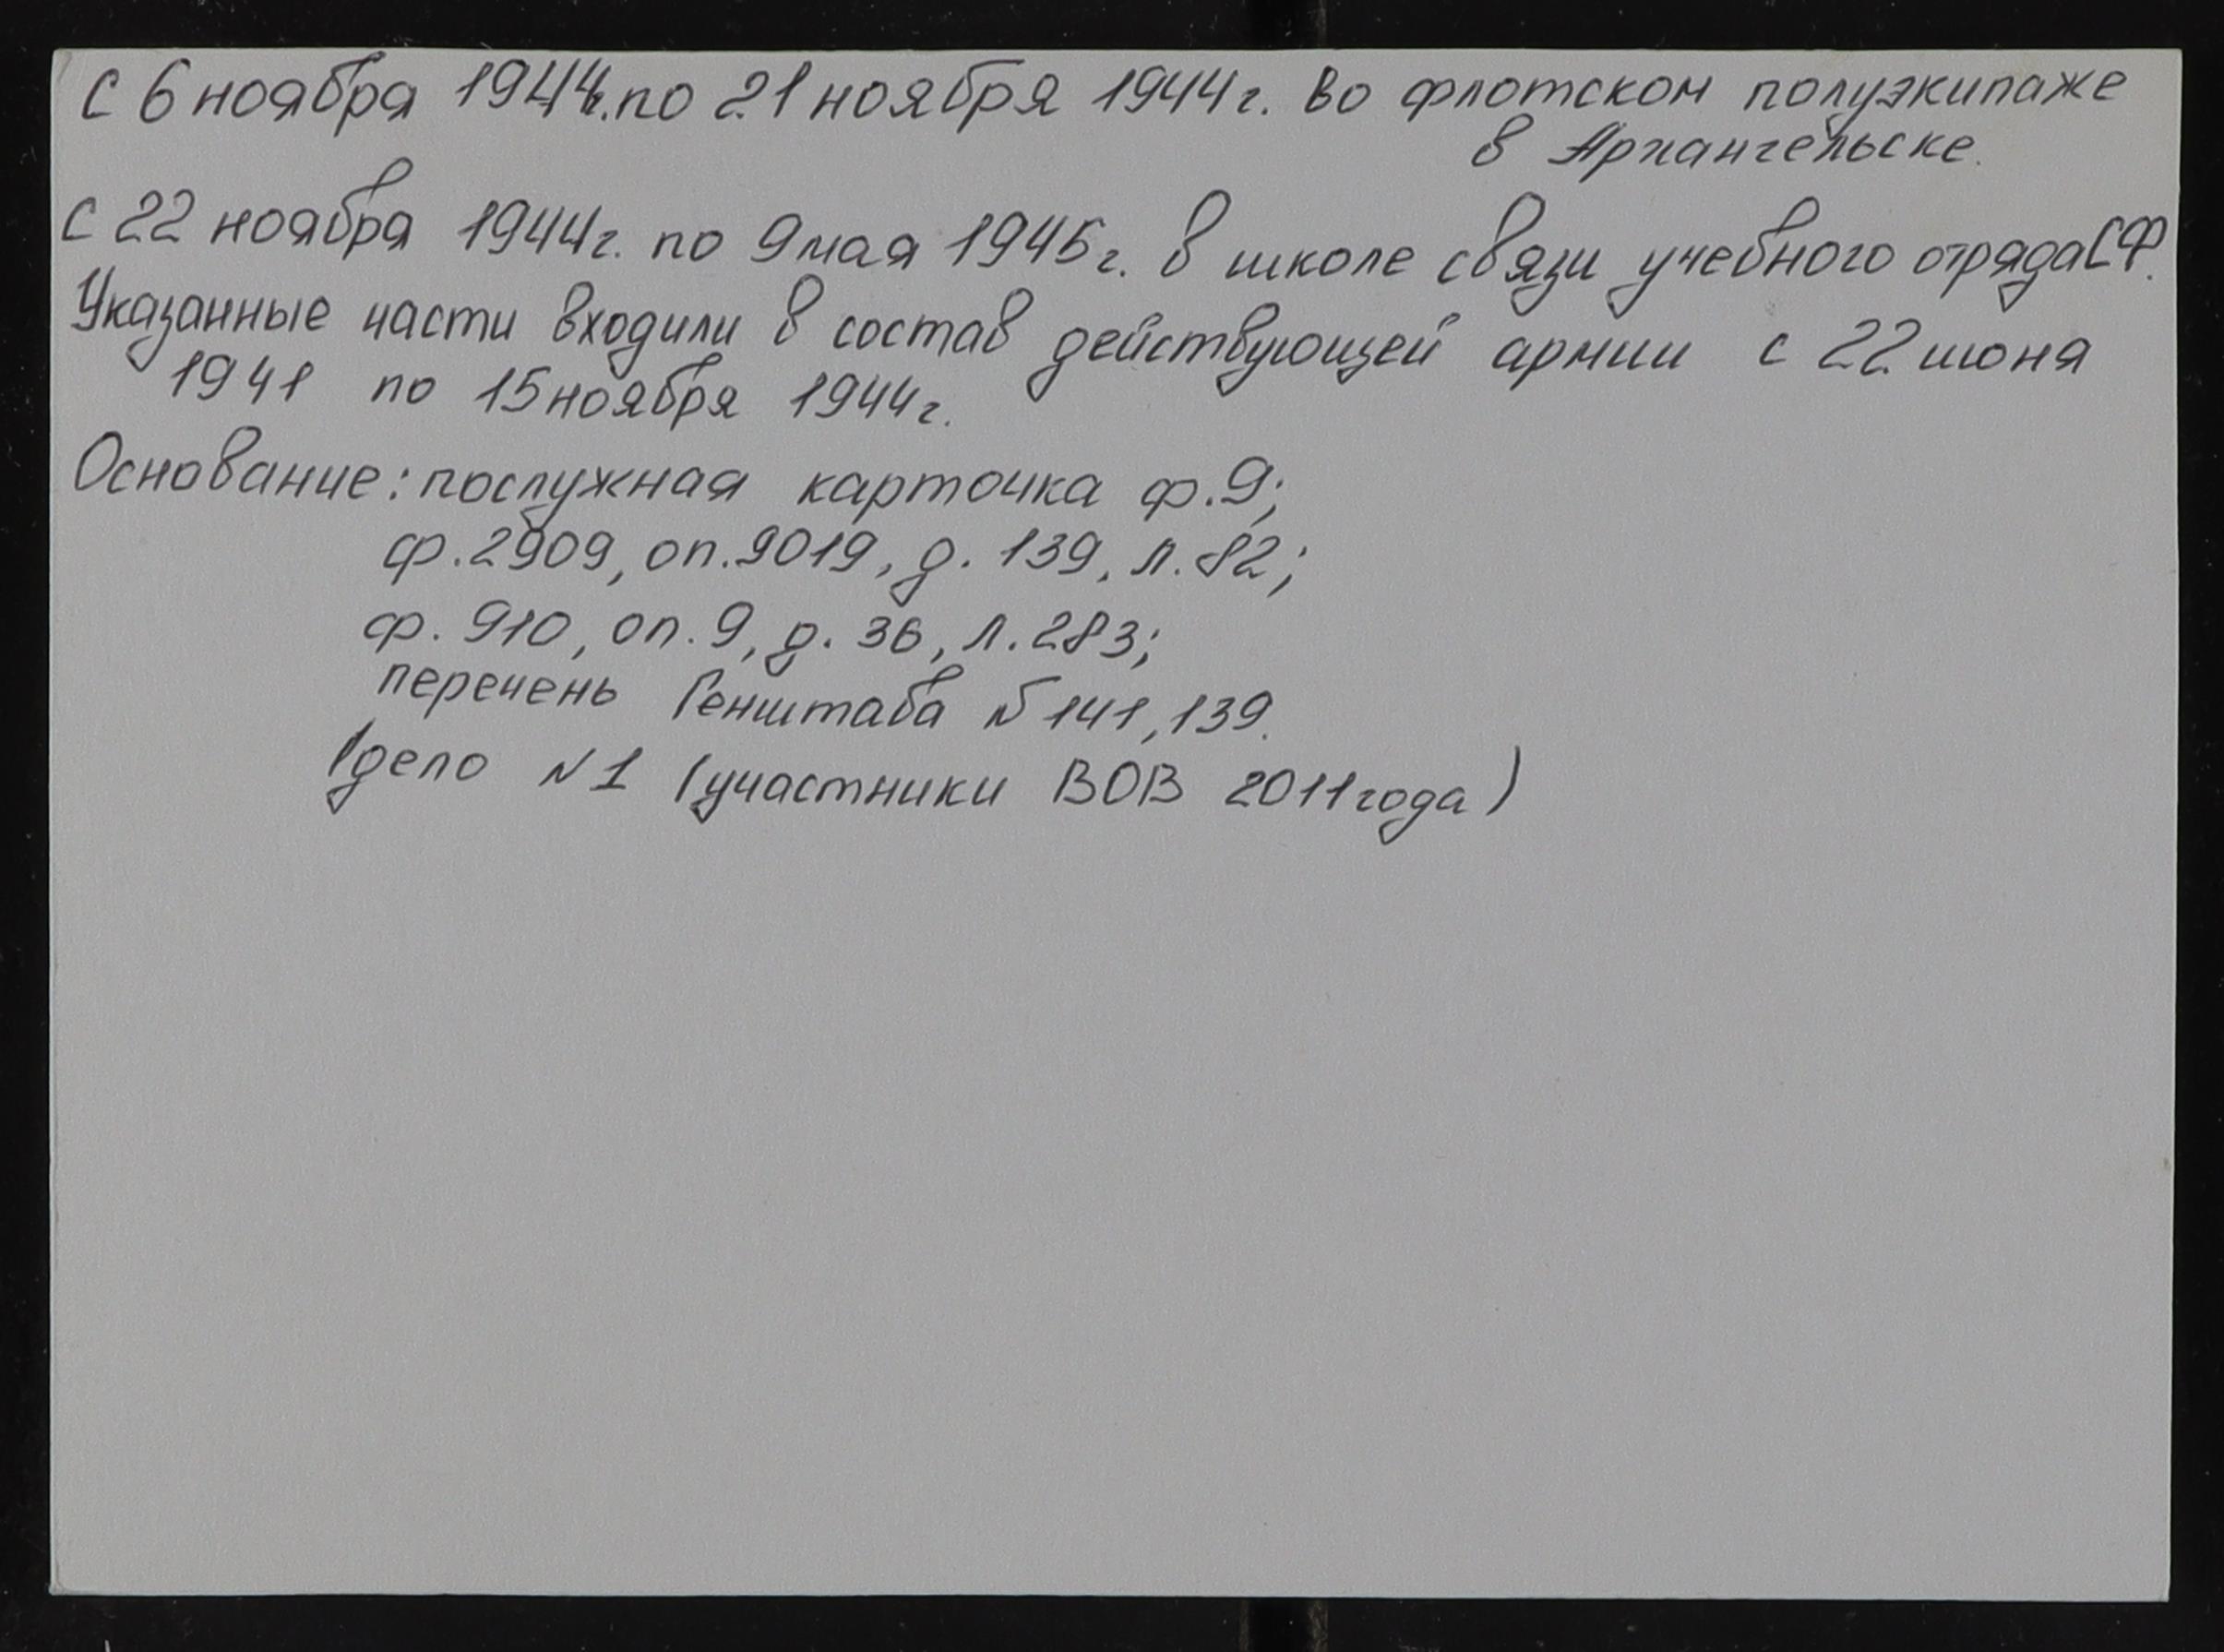 с 6 ноября 1944г. по 21 ноября 1944г. во флотском полуэкипаже
в Архангельске.
с 22 ноября 1944г. по 9 мая 1945г. в школе связи учебного отряда СФ.
Указанные части входили в состав действующей армии с 22 июня
1941 по 15 ноября 1944г.
Основание: послужная карточка ф.9;
ф.2909, оп.9019, д. 139, л. 82;
ф. 910, оп. 9, д. 36, л. 283;
перечень Генштаба № 141, 139.
(дело №1 (участники ВОВ 2011 года)